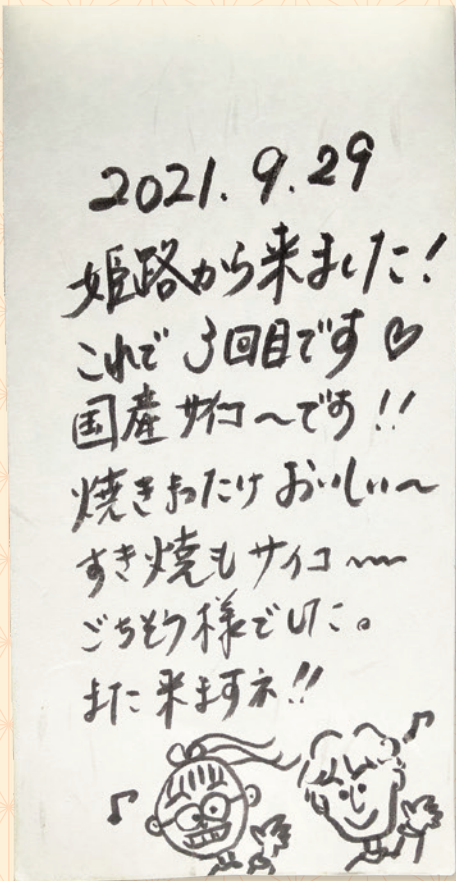 2021.9.29
姫路から来ました!
これで3回目です♡
国産サイコ〜です!!
焼きまったけおいしい〜
すき焼もサイコ〜
ごちそう様でした。
また来ますネ!!